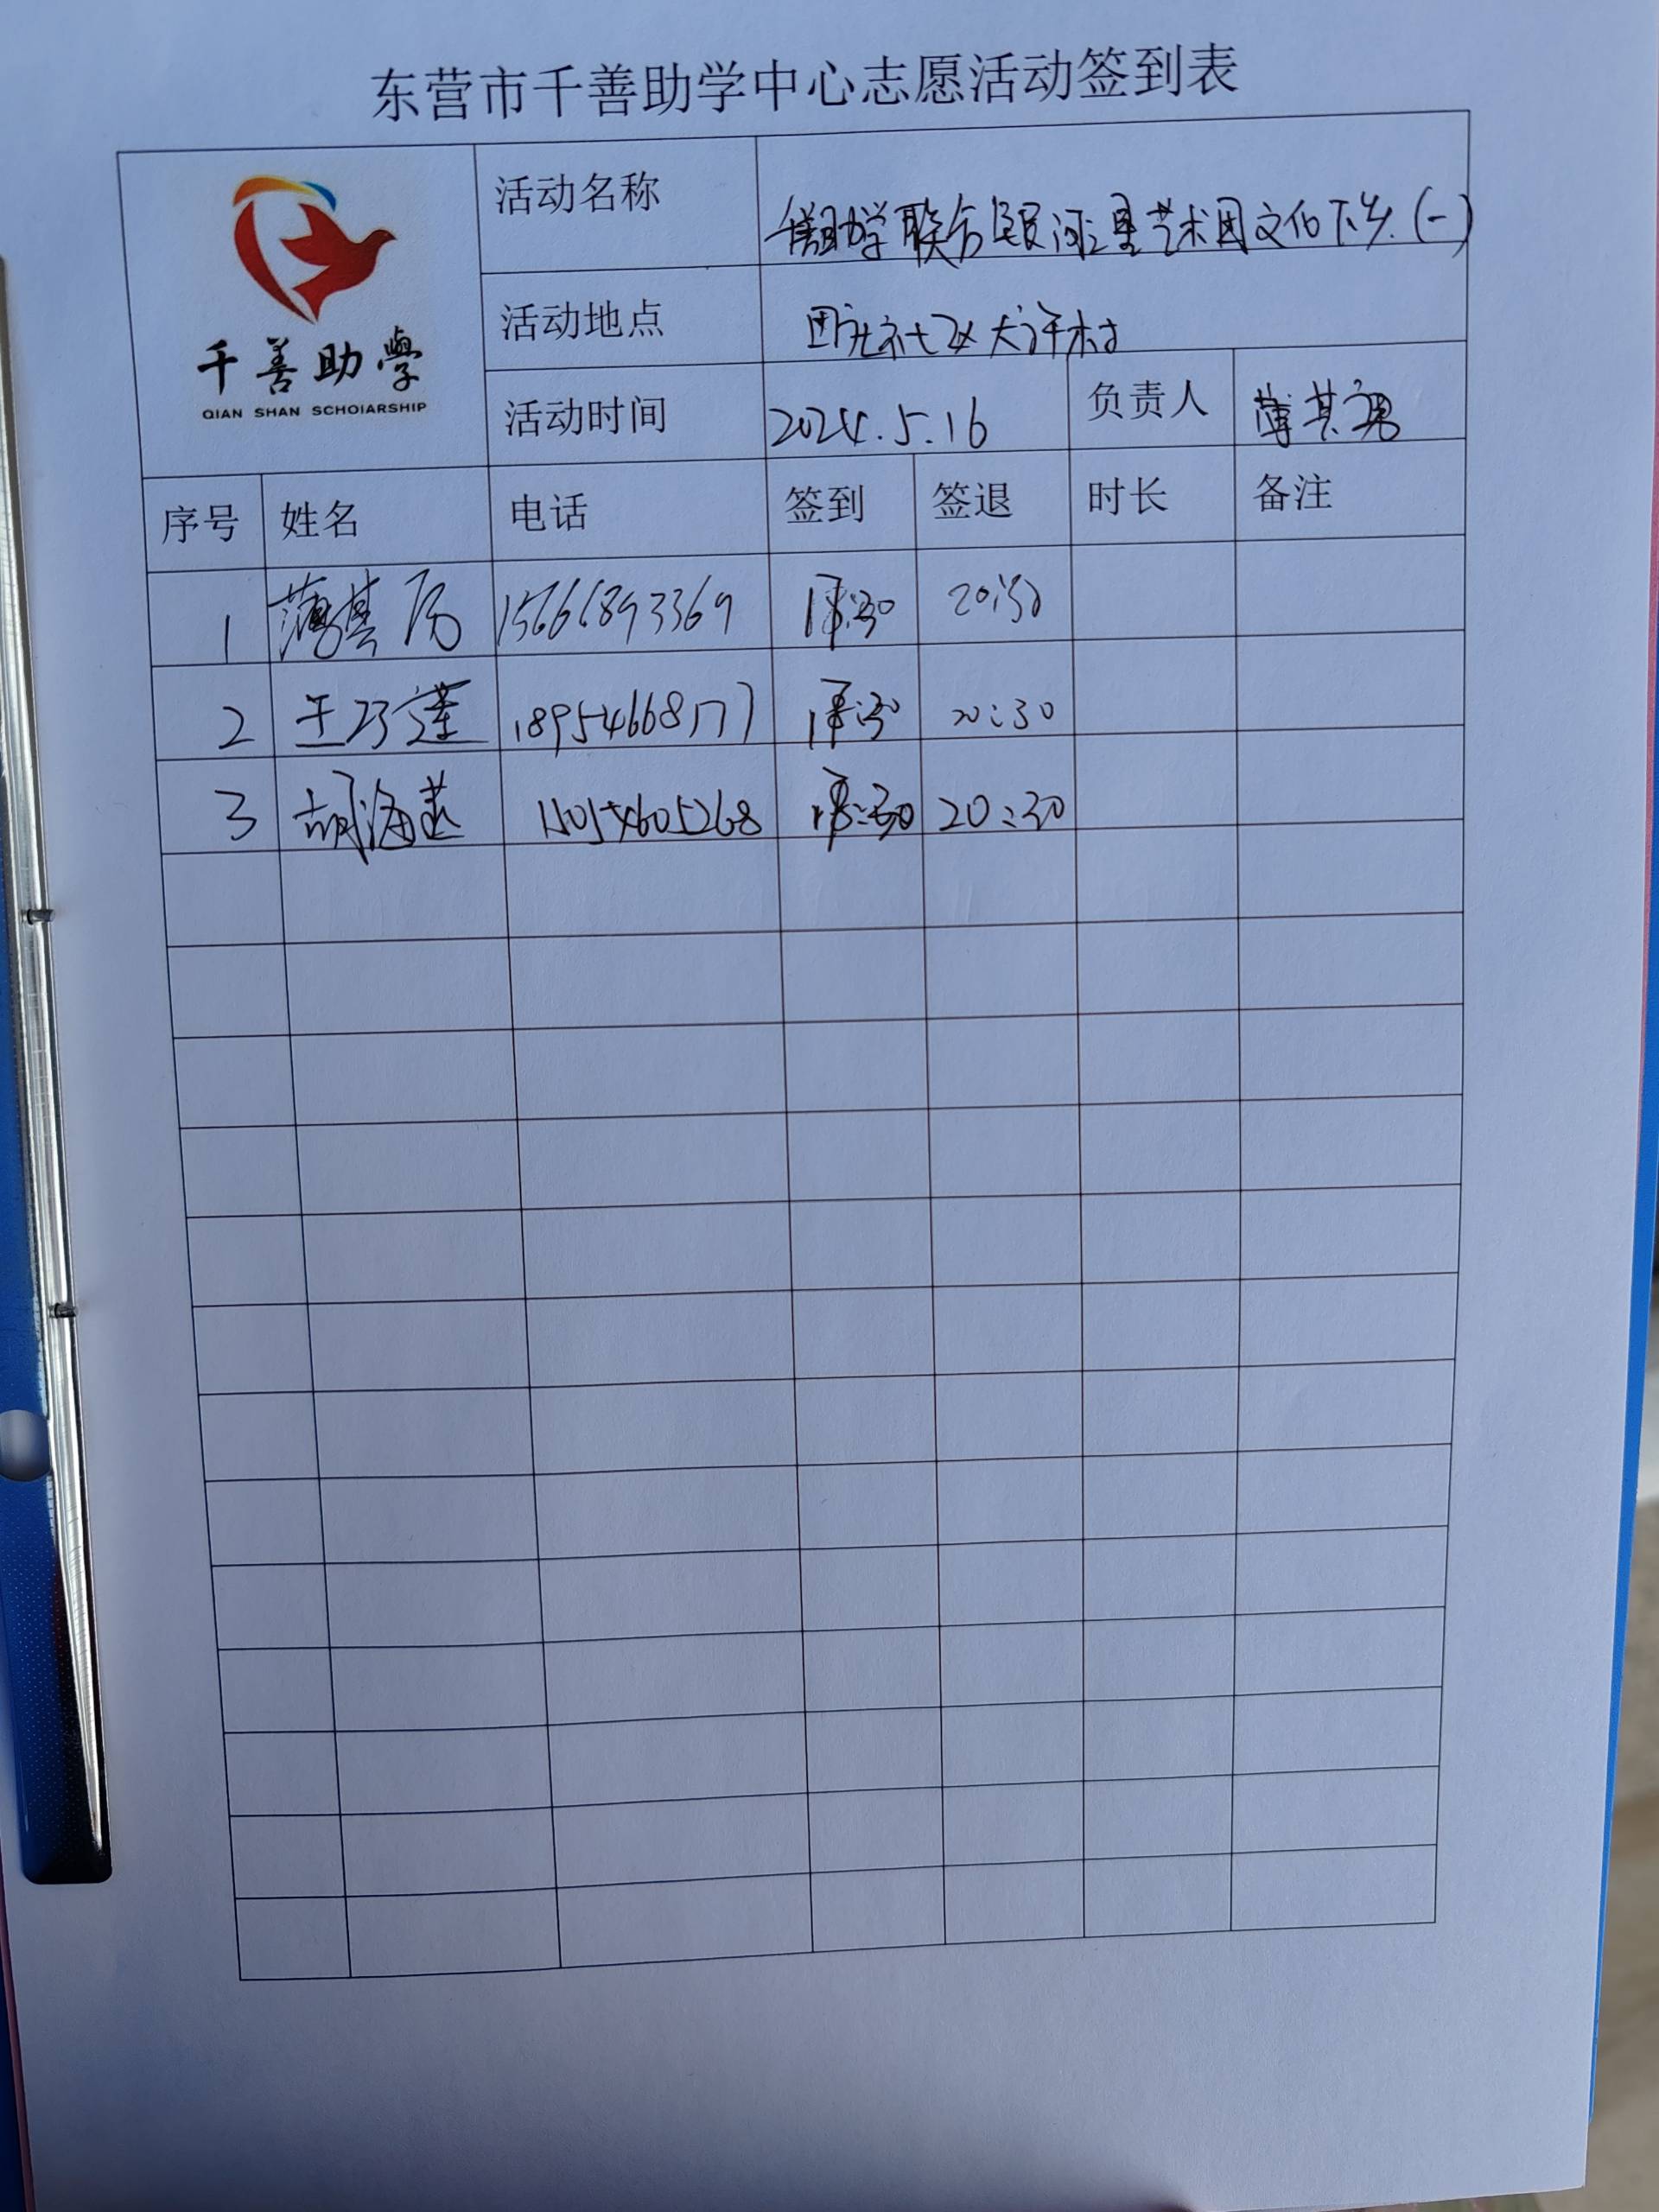 东营市千善助学中心志愿活动签到表
千善助學
QIAN SHAN SCHOlARSHIP
活动名称 千善助学联合银河之星艺术团文化下乡(一)
活动地点 社区大许村
活动时间 2024.5.16 负责人 薄其
序号 姓名 电话 签到 签退 时长 备注
1 薄其 15666893369 20:30
2 王乃莲 18954668177 20:30
3 胡海燕 20:30